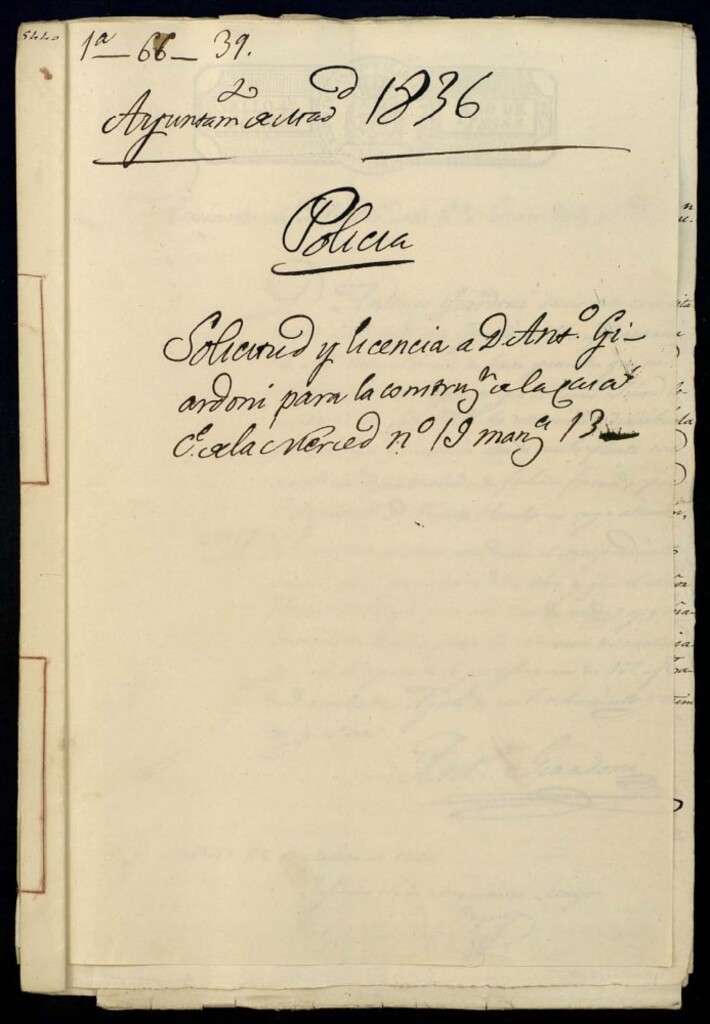 1ª - 66 - 39.
Ayuntam.to de Mad.d 1836
Policia
Solicitud y licencia a D. Ant.º Gi-
ardoni para la construz.n de la casa
C.e de la Merced n.º 19 manz.a 13